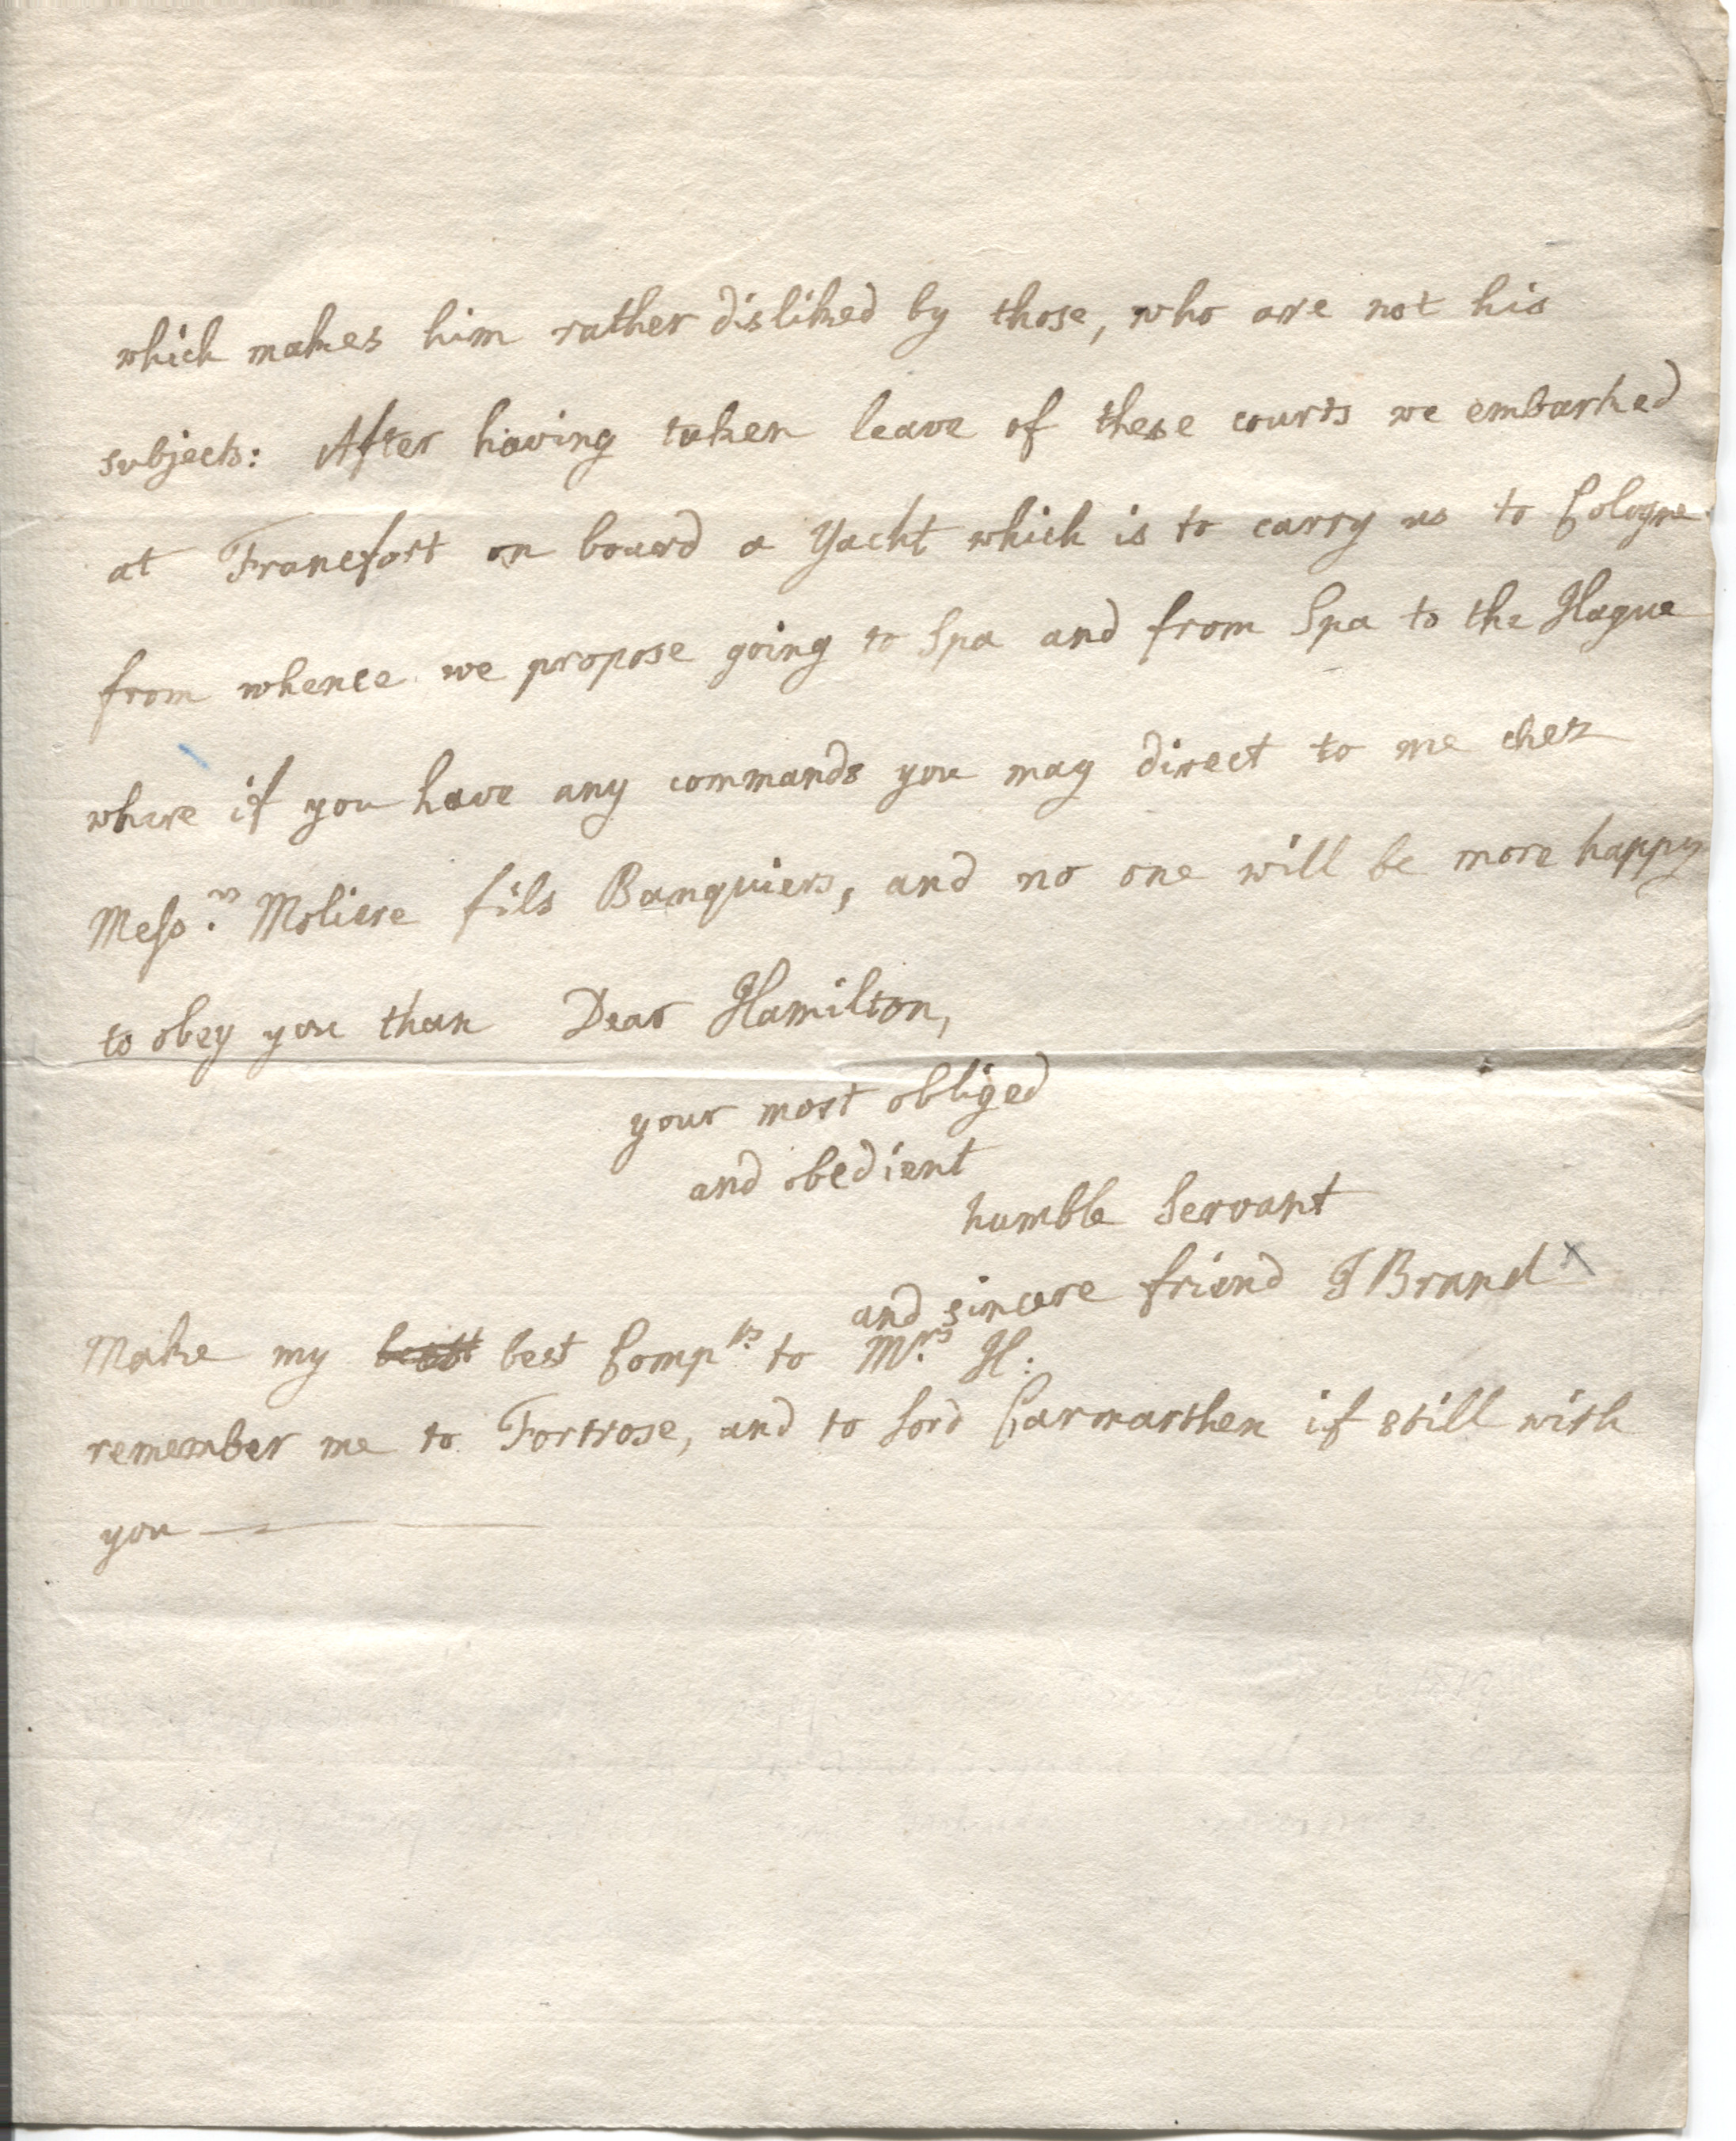 which makes him rather disliked by those, who are not his
subjects: After having taken leave of these courts we embarked
at Francfort on board a Yacht which is to carry us to Cologne
from whence we propose going to Spa and from Spa to the Hague
where if you have any commands you may direct to me chez
Messrs. Moliere fils Banquiers, and no one will be more happy
to obey you than Dear Hamilton,
your most obliged
and obedient
humble Servant
and sincere friend T Brand x
Make my best Compts. to Mrs. H:
remember me to Fortrose, and to Lord Carmarthen if still with
you